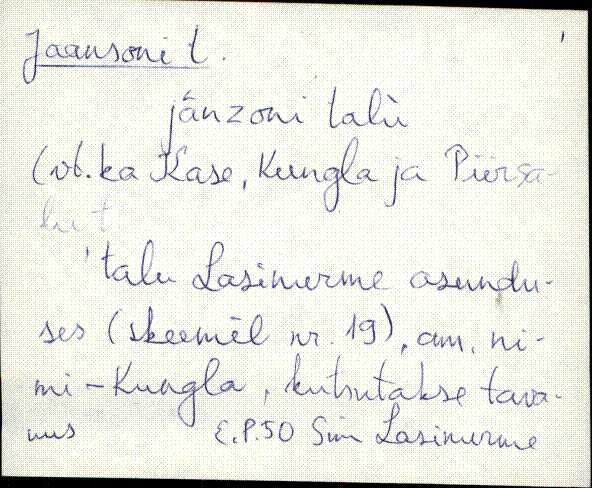 Jaansoni t.
jânzoni talù
(vt. ka Kase, Kungla ja Piirsa-
lu t.
talu Lasinurme asundu-
ses (skeemil nr. 19), am. ni-
mi – Kungla, kutsutakse tava-
nus E.P.50 Sim Lasinurme